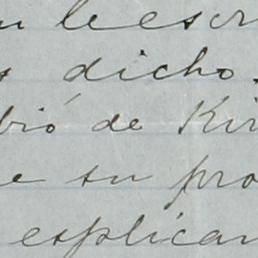 le escr
dicho.
bió de Kir
e su pro
explican